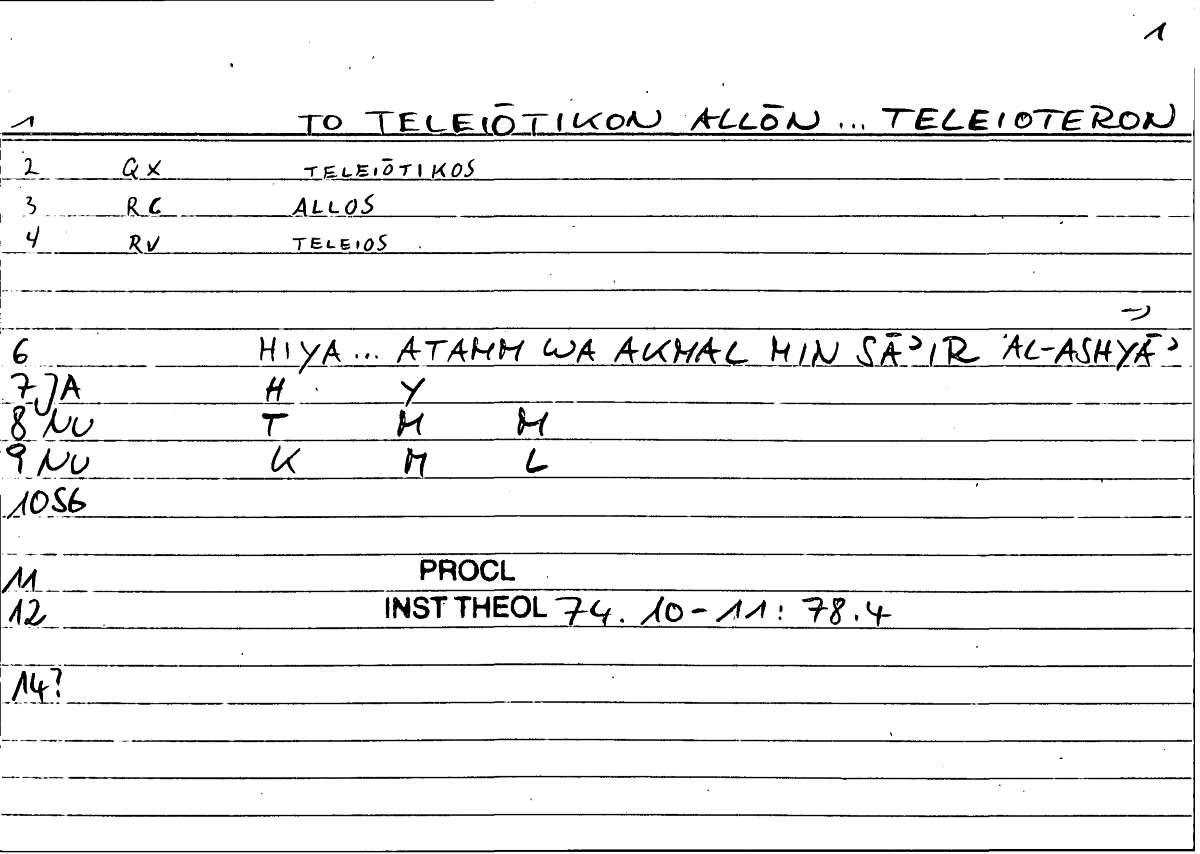 1
1 TO TELEIŌTIKON ALLŌN ... TELEIOTERON
2 QX TELEIŌTIKOS
3 RC ALLOS
4 RV TELEIOS
6 HIYA ... ATAMM WA AKMAL MIN SĀʾIR AL-ASHYĀʾ
7 JA H Y
8 NU T M M
9 NU K M L
10 S6
11 PROCL
12 INST THEOL 74. 10-11: 78.4
14?